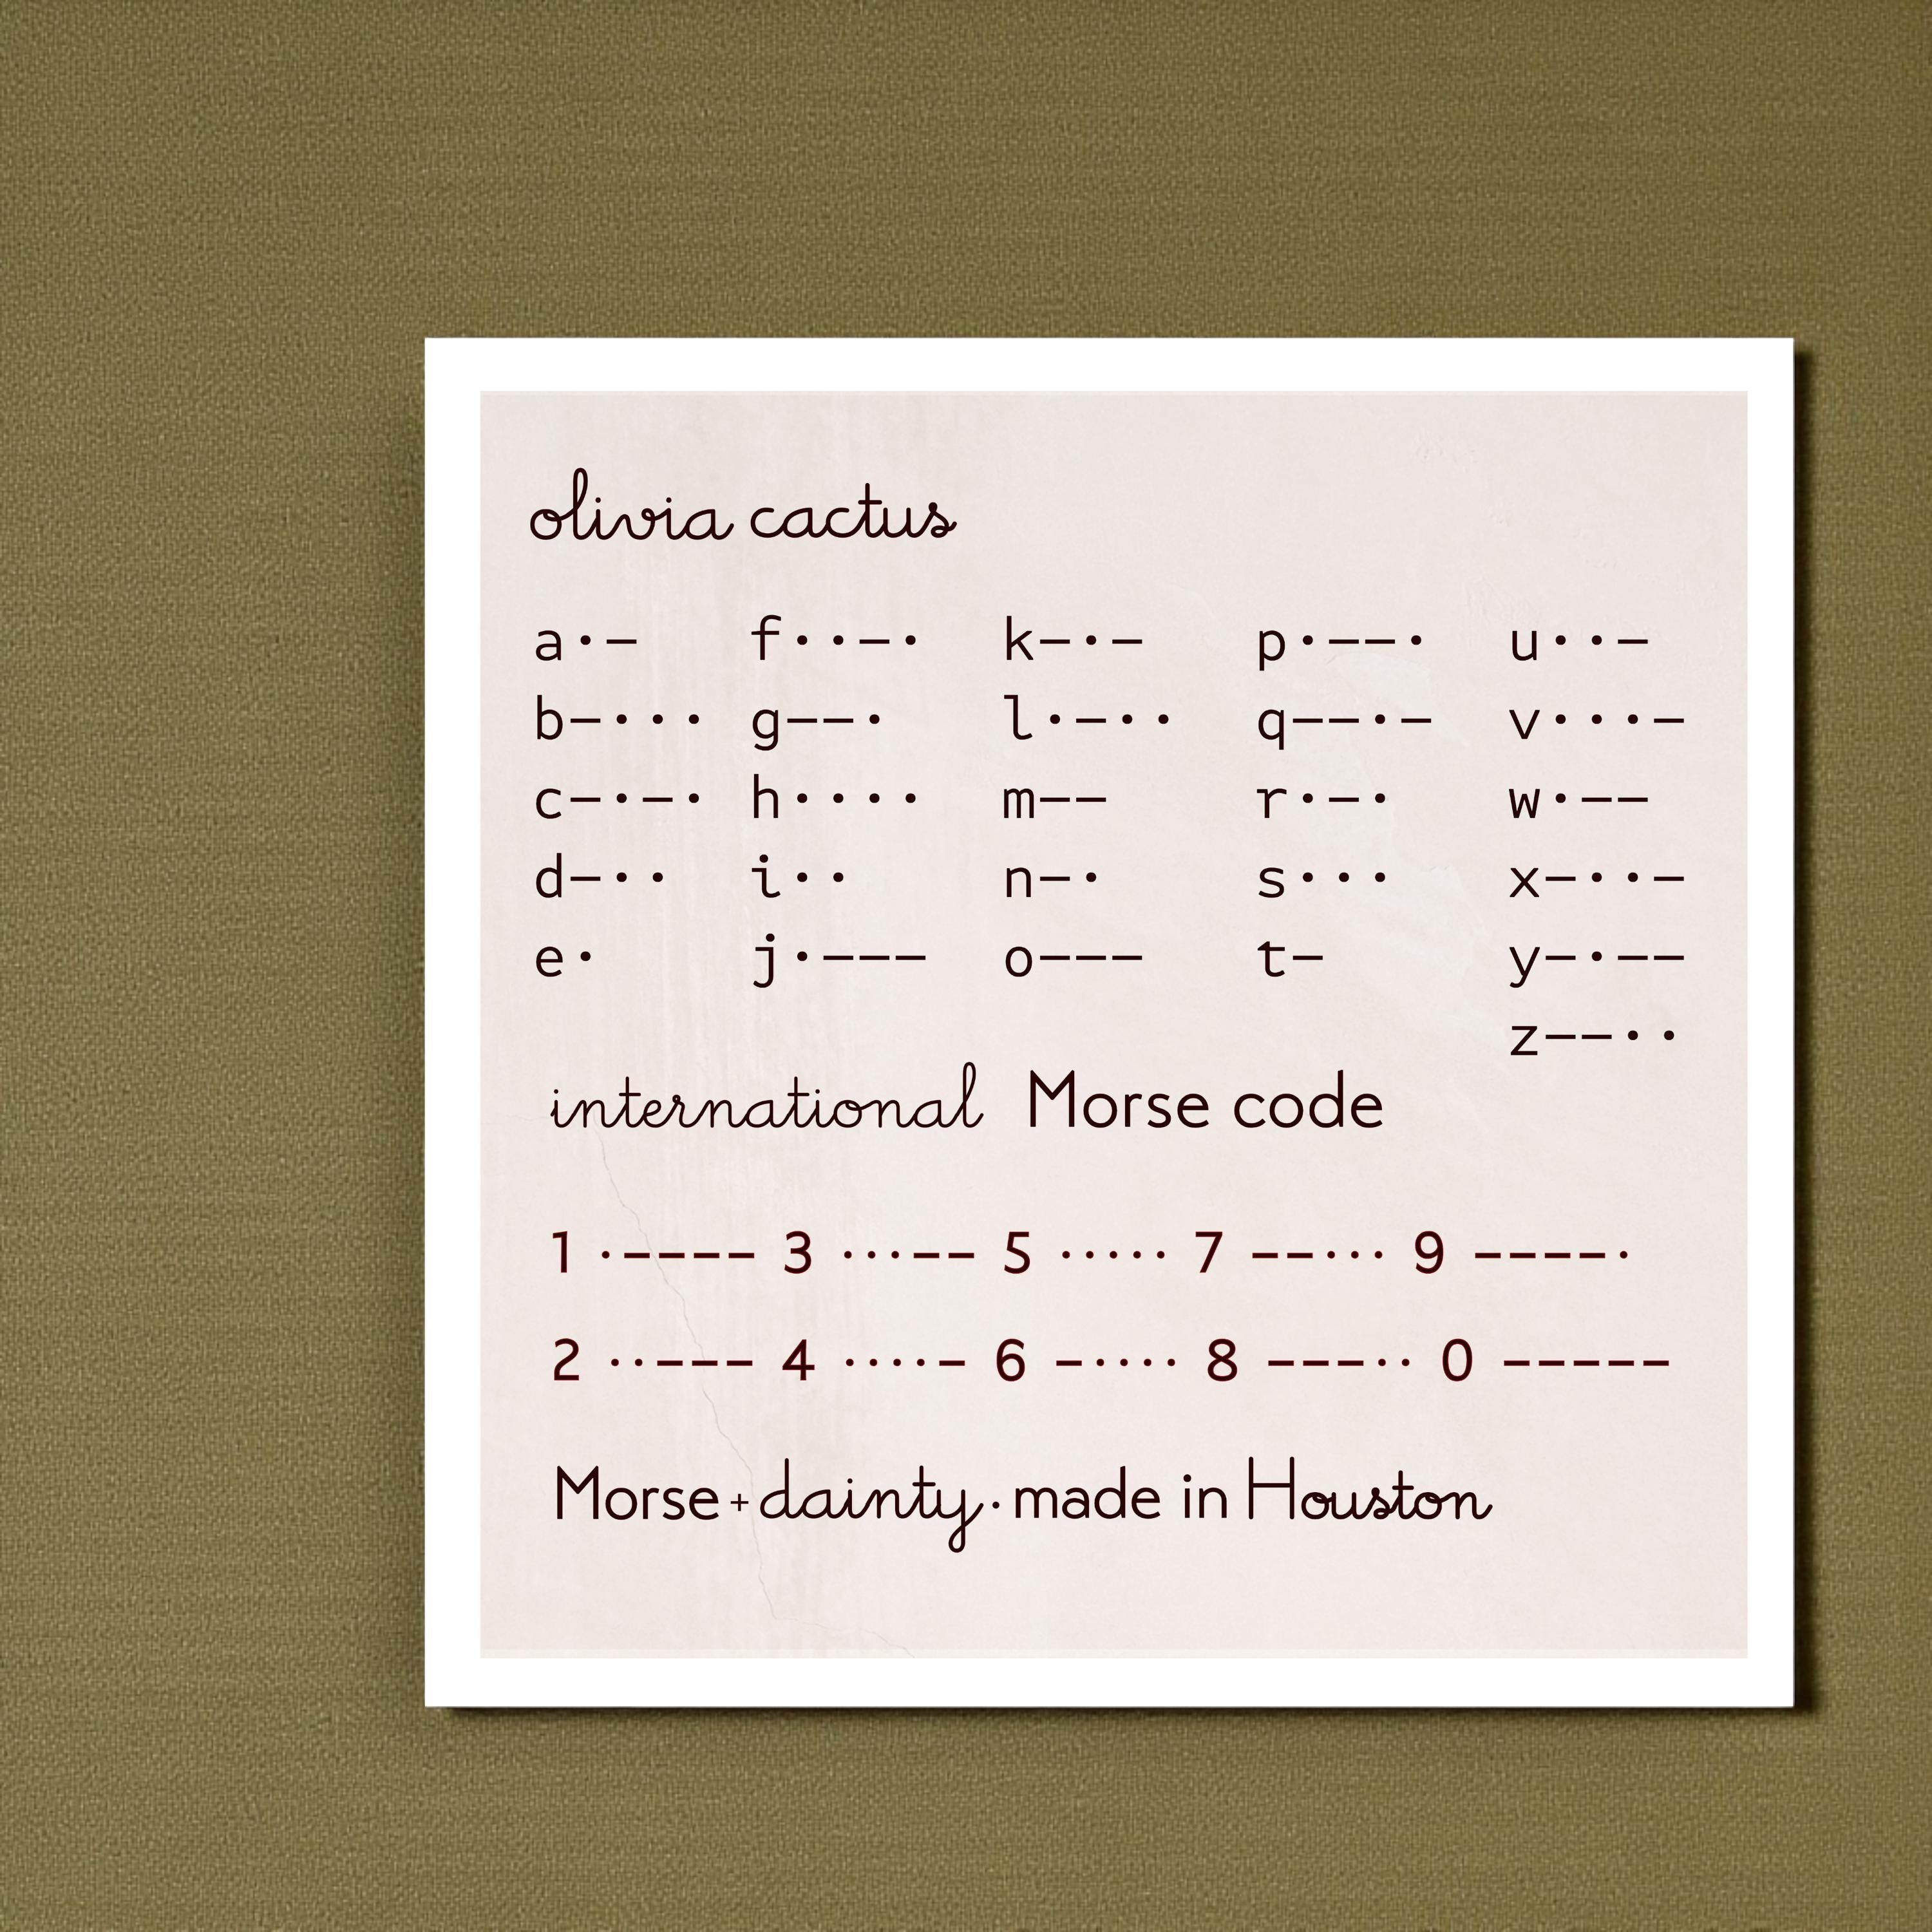 olivia cactus
a·– f··–· k–·– p·––· u··–
b–··· g––· l·–·· q––·– v···–
c–·–· h···· m–– r·–· w·––
d–·· i·· n–· s··· x–··–
e· j·––– o––– t– y–·––
z––··
international Morse code
1 ·–––– 3 ···–– 5 ····· 7 ––··· 9 ––––·
2 ··––– 4 ····– 6 –···· 8 –––·· 0 –––––
Morse + dainty · made in Houston